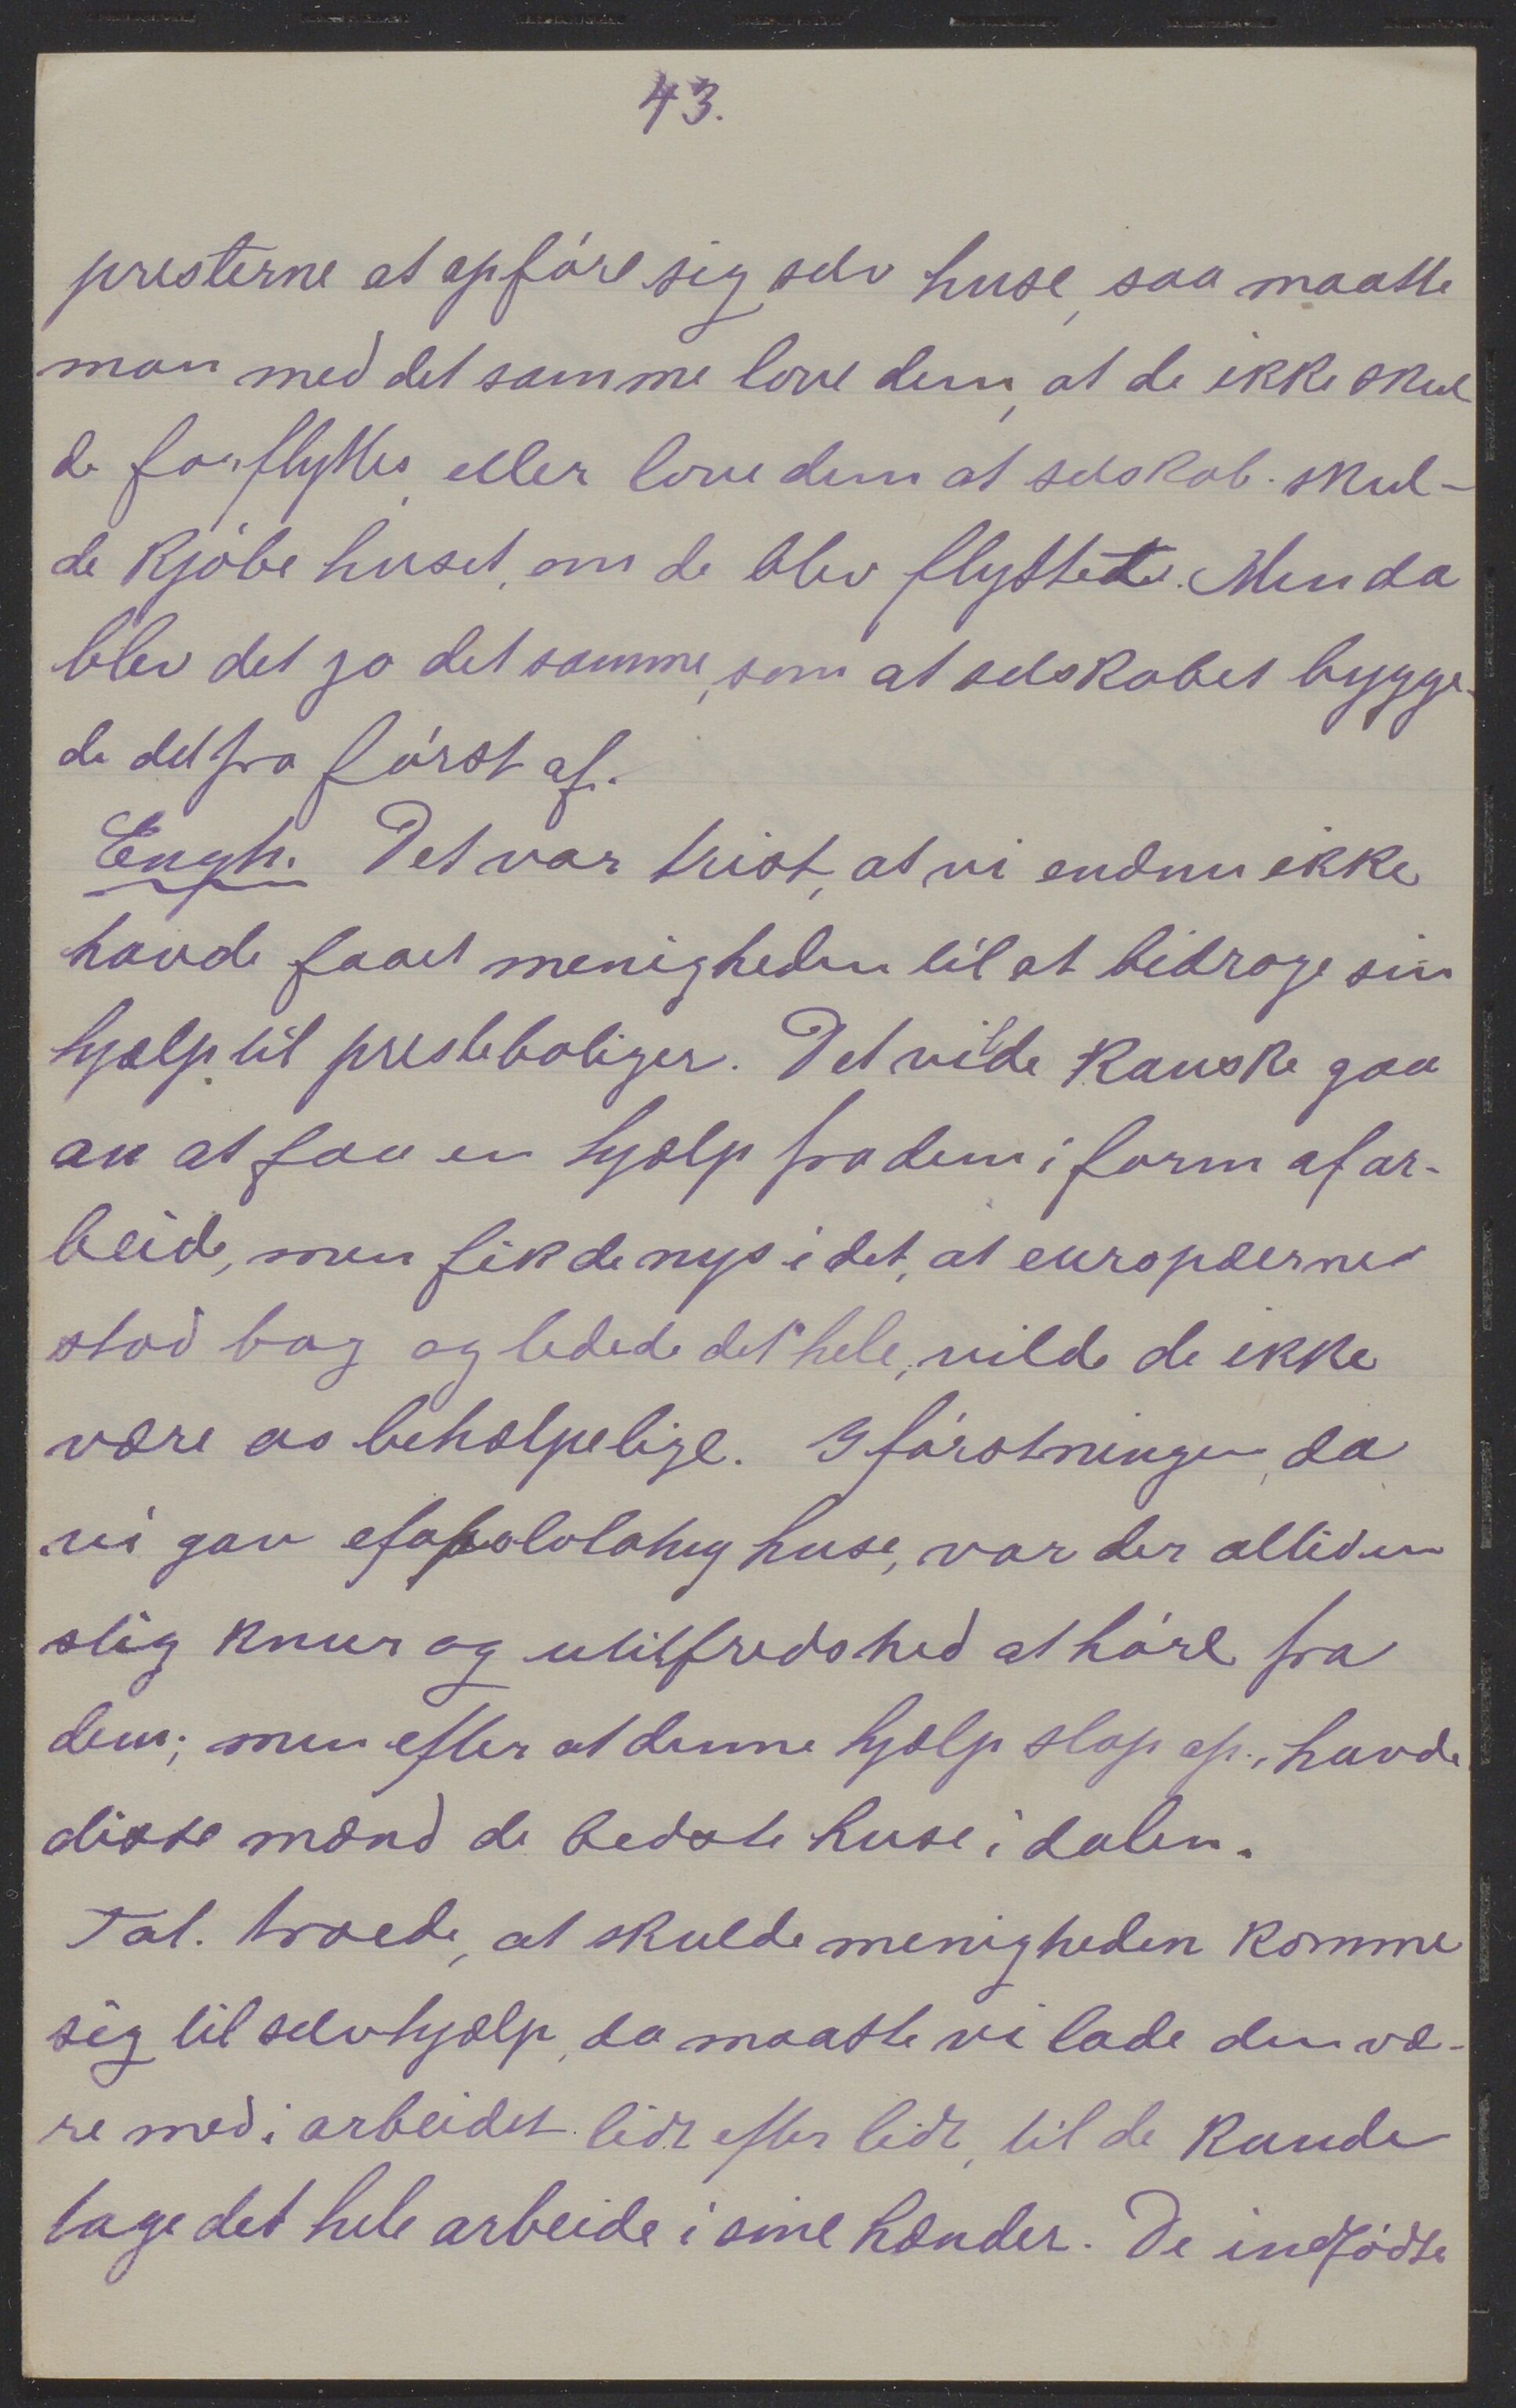 43.
presterne at opføre sig selv huse, saa maatte
man med det samme love dem, at de ikke skul
de forflyttes, eller love dem at selskab. skul-
de kjøbe huset, om de blev flyttede. Men da
blev det jo det samme, som at selskabet bygge-
de det fra først af.
Engh. Det var trist, at vi endnu ikke
havde faaet menigheden til at bidrage sin
hjælp til presteboliger. Det vilde kanske gaa
an at faa en hjælp fra dem i form af ar-
beide, men fik de nys i det, at europæerne
stod bag og ledede det hele, vilde de ikke
være os behælpelige. I førstningen, da
vi gav efapololahy huse, var der altid en
slig knur og utilfredshed at høre fra
dem; men efter at denne hjælp slap op, havde
disse mænd de bedste huse i dalen.
Tal. troede, at skulde menigheden komme
sig til selvhjælp, da maatte vi lade den væ-
re med i arbeidet lidt efter lidt, til de kunde
tage det hele arbeide i sine hænder. De indfødte